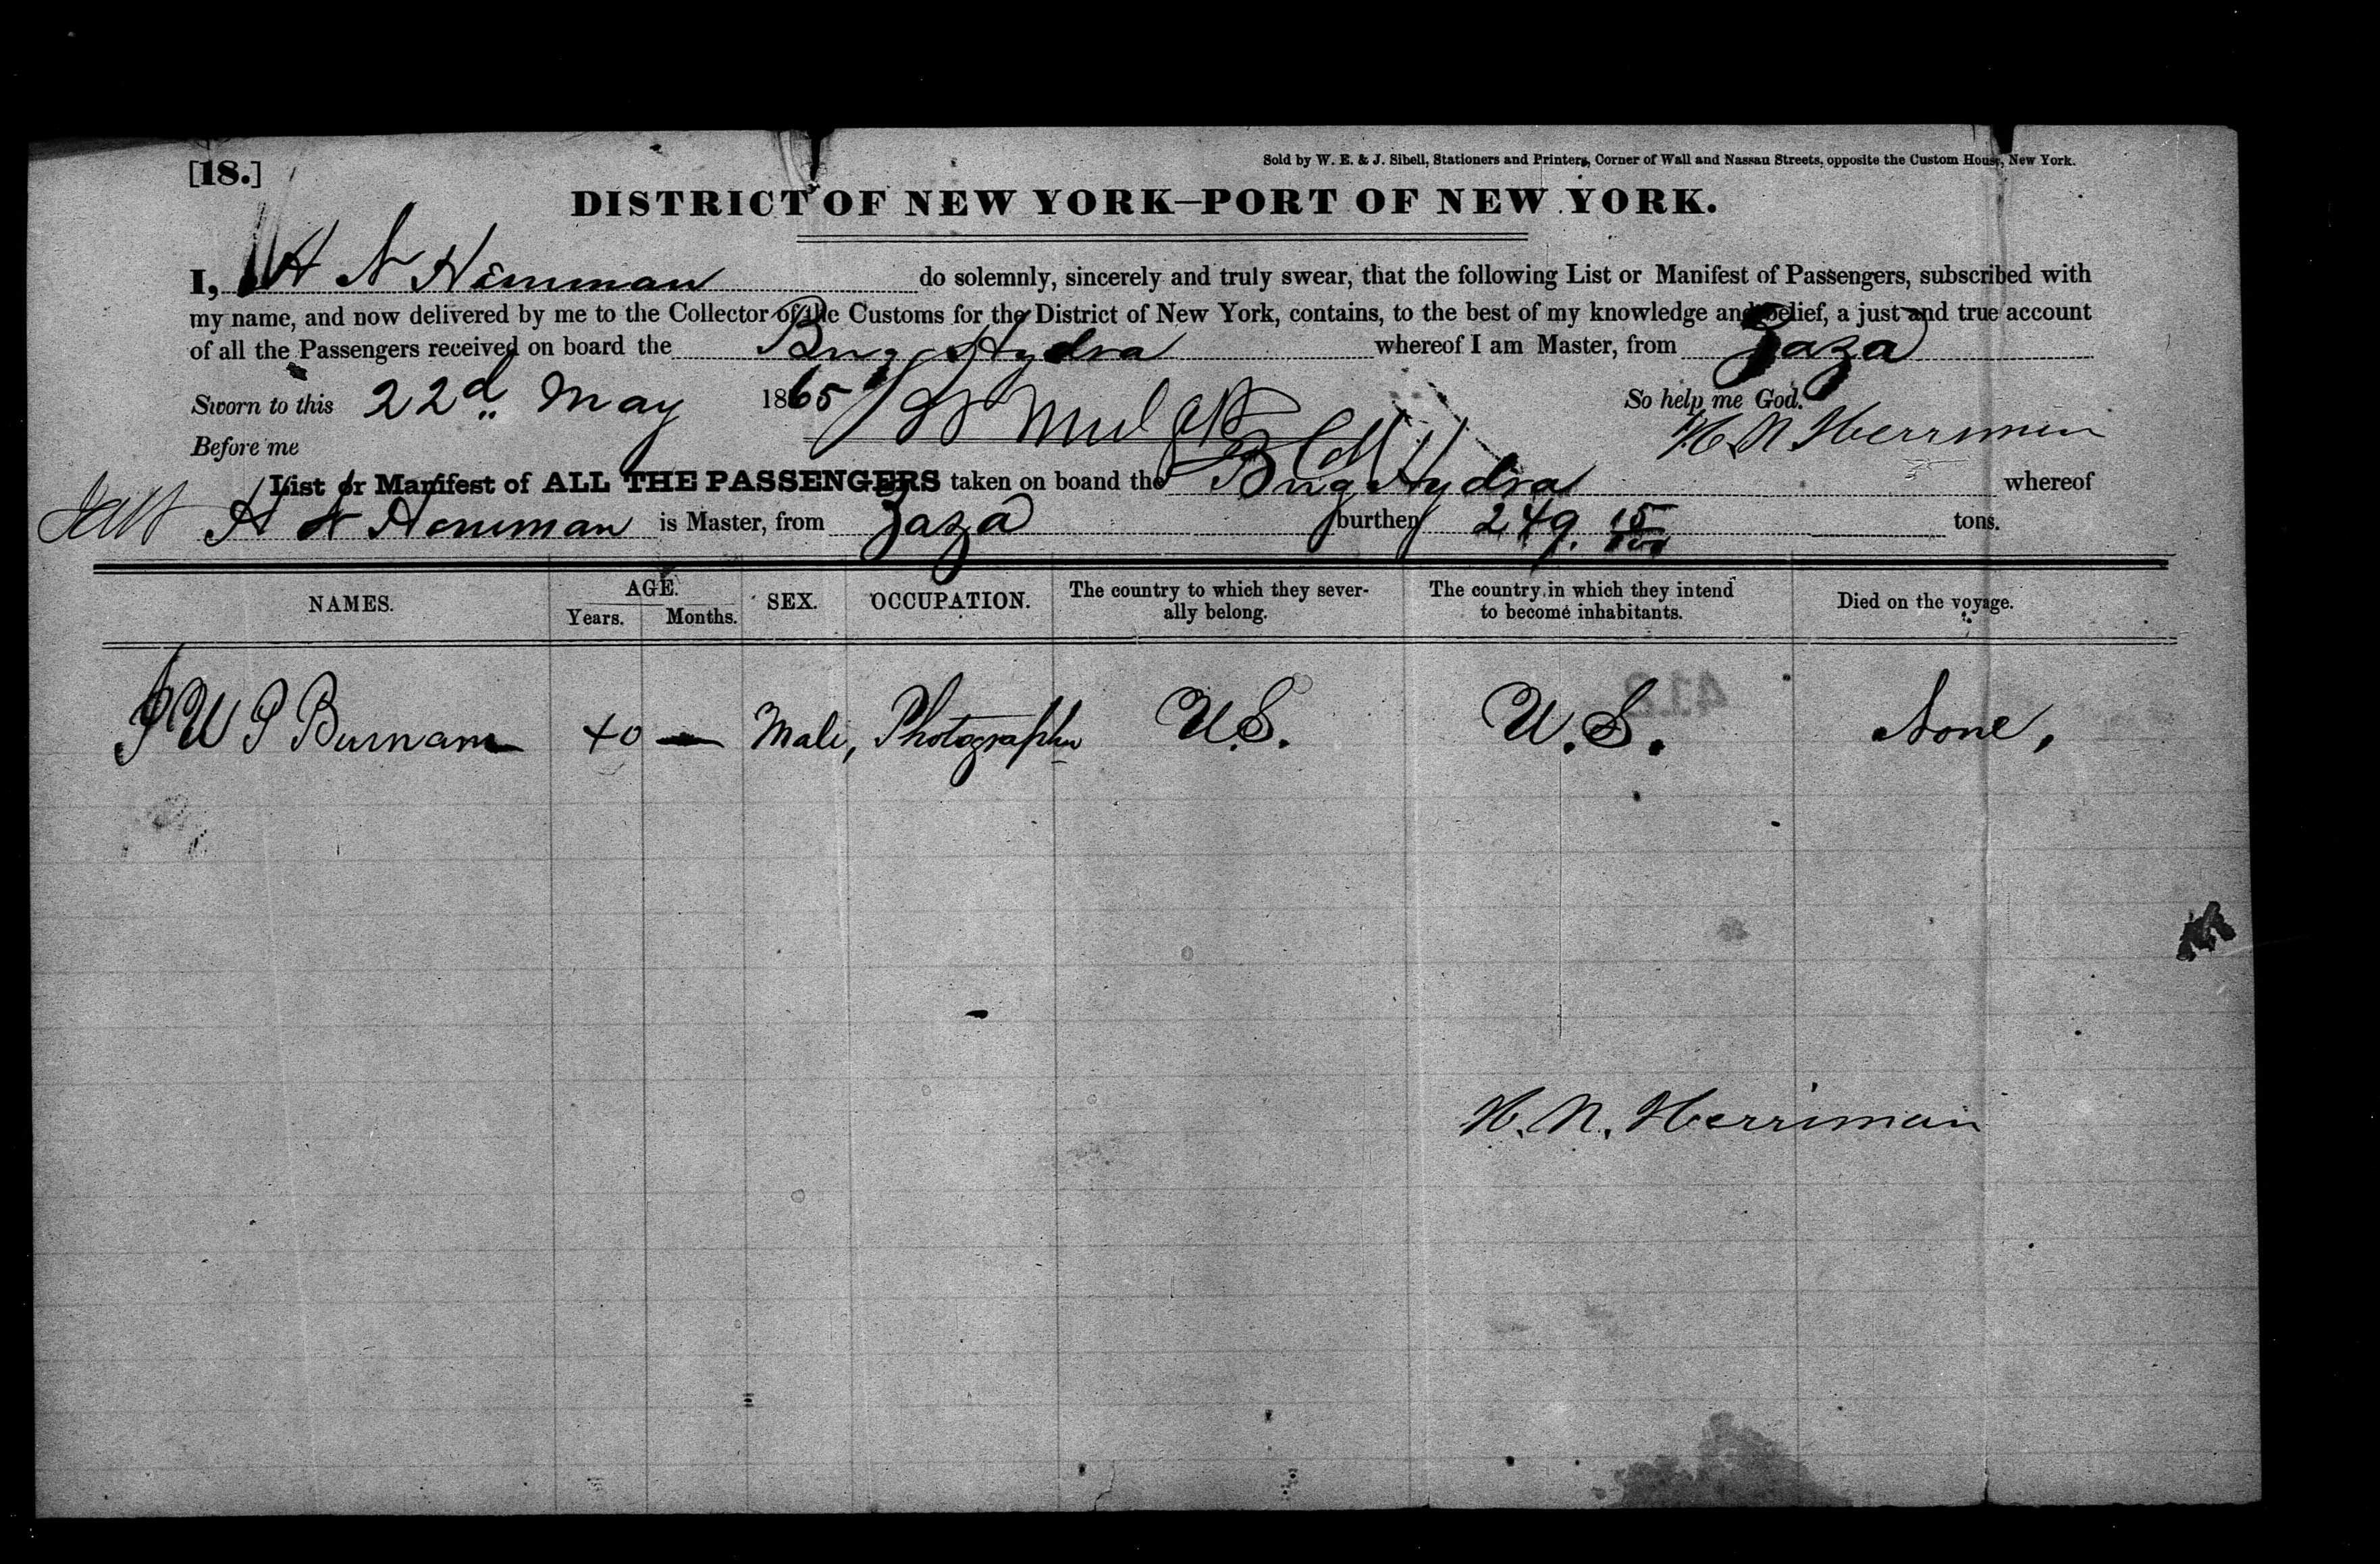 [18.]
Sold by W. E. & J. Sibell, Stationers and Printers, Corner of Wall and Nassau Streets, opposite the Custom House, New York.
DISTRICT OF NEW YORK—PORT OF NEW YORK.
I, H N Herriman do solemnly, sincerely and truly swear, that the following List or Manifest of Passengers, subscribed with
my name, and now delivered by me to the Collector of the Customs for the District of New York, contains, to the best of my knowledge and belief, a just and true account
of all the Passengers received on board the Brig Hydra whereof I am Master, from Zaza
Sworn to this 22d May 1865 So help me God.
Before me H. N. Herriman
List or Manifest of ALL THE PASSENGERS taken on boand the Brig Hydra whereof
H N Herriman is Master, from Zaza burthen 249. 15/100 tons.
NAMES. AGE. Years. Months. SEX. OCCUPATION. The country to which they severally belong. The country in which they intend to become inhabitants. Died on the voyage.
W S Burnam 40 — Male, Photographer U.S. U.S. None,
H. N. Herriman